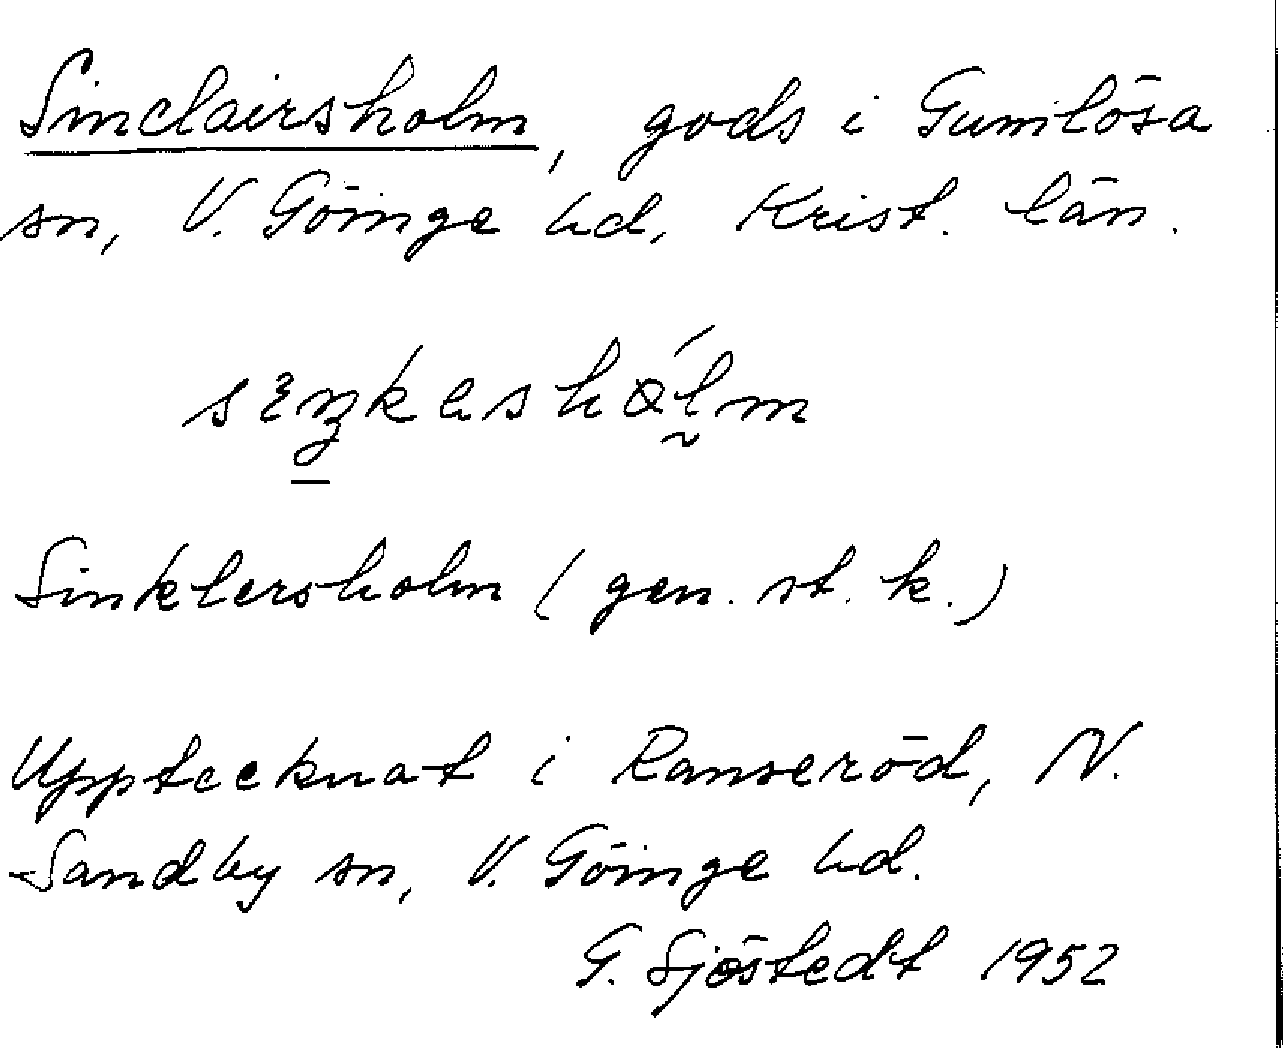 Sinclairsholm, gods i Gumlösa
sn, V. Göinge hd, Krist. län.
Sinklersholm (gen. st. k.)
Upptecknat i Ranseröd, N.
Sandby sn, V. Göinge hd.
G. Sjöstedt 1952